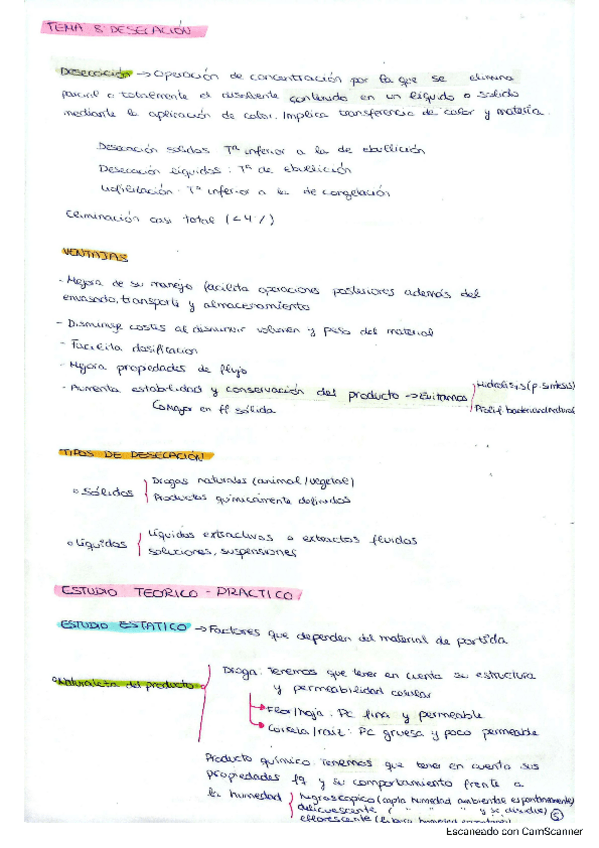 TEMA 8 DESECACIÓN
Desecación → Operación de concentración por la que se elimina
parcial o totalmente el disolvente contenido en un líquido o sólido
mediante la aplicación de calor. Implica transferencia de calor y materia.
Desecación sólidos Tª inferior a la de ebullición
Desecación líquidos: Tª de Ebullición
Liofilización: Tª inferior a la de congelación
Eliminación casi total (<4%)
VENTAJAS
- Mejora de su manejo facilita operaciones posteriores además del
envasado, transporte y almacenamiento
- Disminuye costes al disminuir volumen y peso del material
- Facilita dosificación
- Mejora propiedades de flujo
- Aumenta estabilidad y conservación del producto → Evitamos
Hidrolisis (p. sintesis)
Prolif bacteriana (natural
Mayor en ff sólida
TIPOS DE DESECACIÓN
Sólidos
Drogas naturales (animal/vegetal)
Productos químicamente definidos
Líquidos
Líquidos extractivos o extractos fluidos
soluciones, suspensiones
ESTUDIO TEORICO - PRACTICO
ESTUDIO ESTATICO → Factores que dependen del material de partida
Naturaleza del producto
Droga: Tenemos que tener en cuenta su estructura
y permeabilidad celular
Flor/hoja: PC fina y permeable
Corteza/raiz: PC gruesa y poco permeable
Producto químico: Tenemos que tener en cuenta sus
propiedades fq y su comportamiento frente a
la humedad
higroscópico (capta humedad ambiental espontáneamente)
delicuescente ( " " " y se disuelve)
eflorescente (libera humedad
5
Escaneado con CamScanner